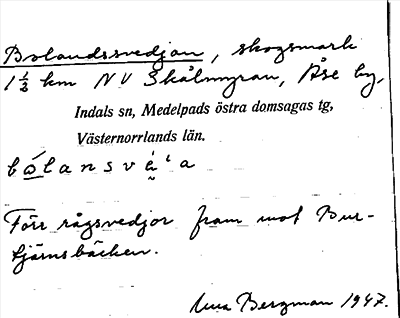 Bolandssvedjan, skogsmark
1 1/2 km NV Skålmyran, Åse by,
Indals sn, Medelpads östra domsagas tg,
Västernorrlands län.
Förr rågsvedjor fram mot Bur-
tjärnsbäcken.
Bergman 1947.